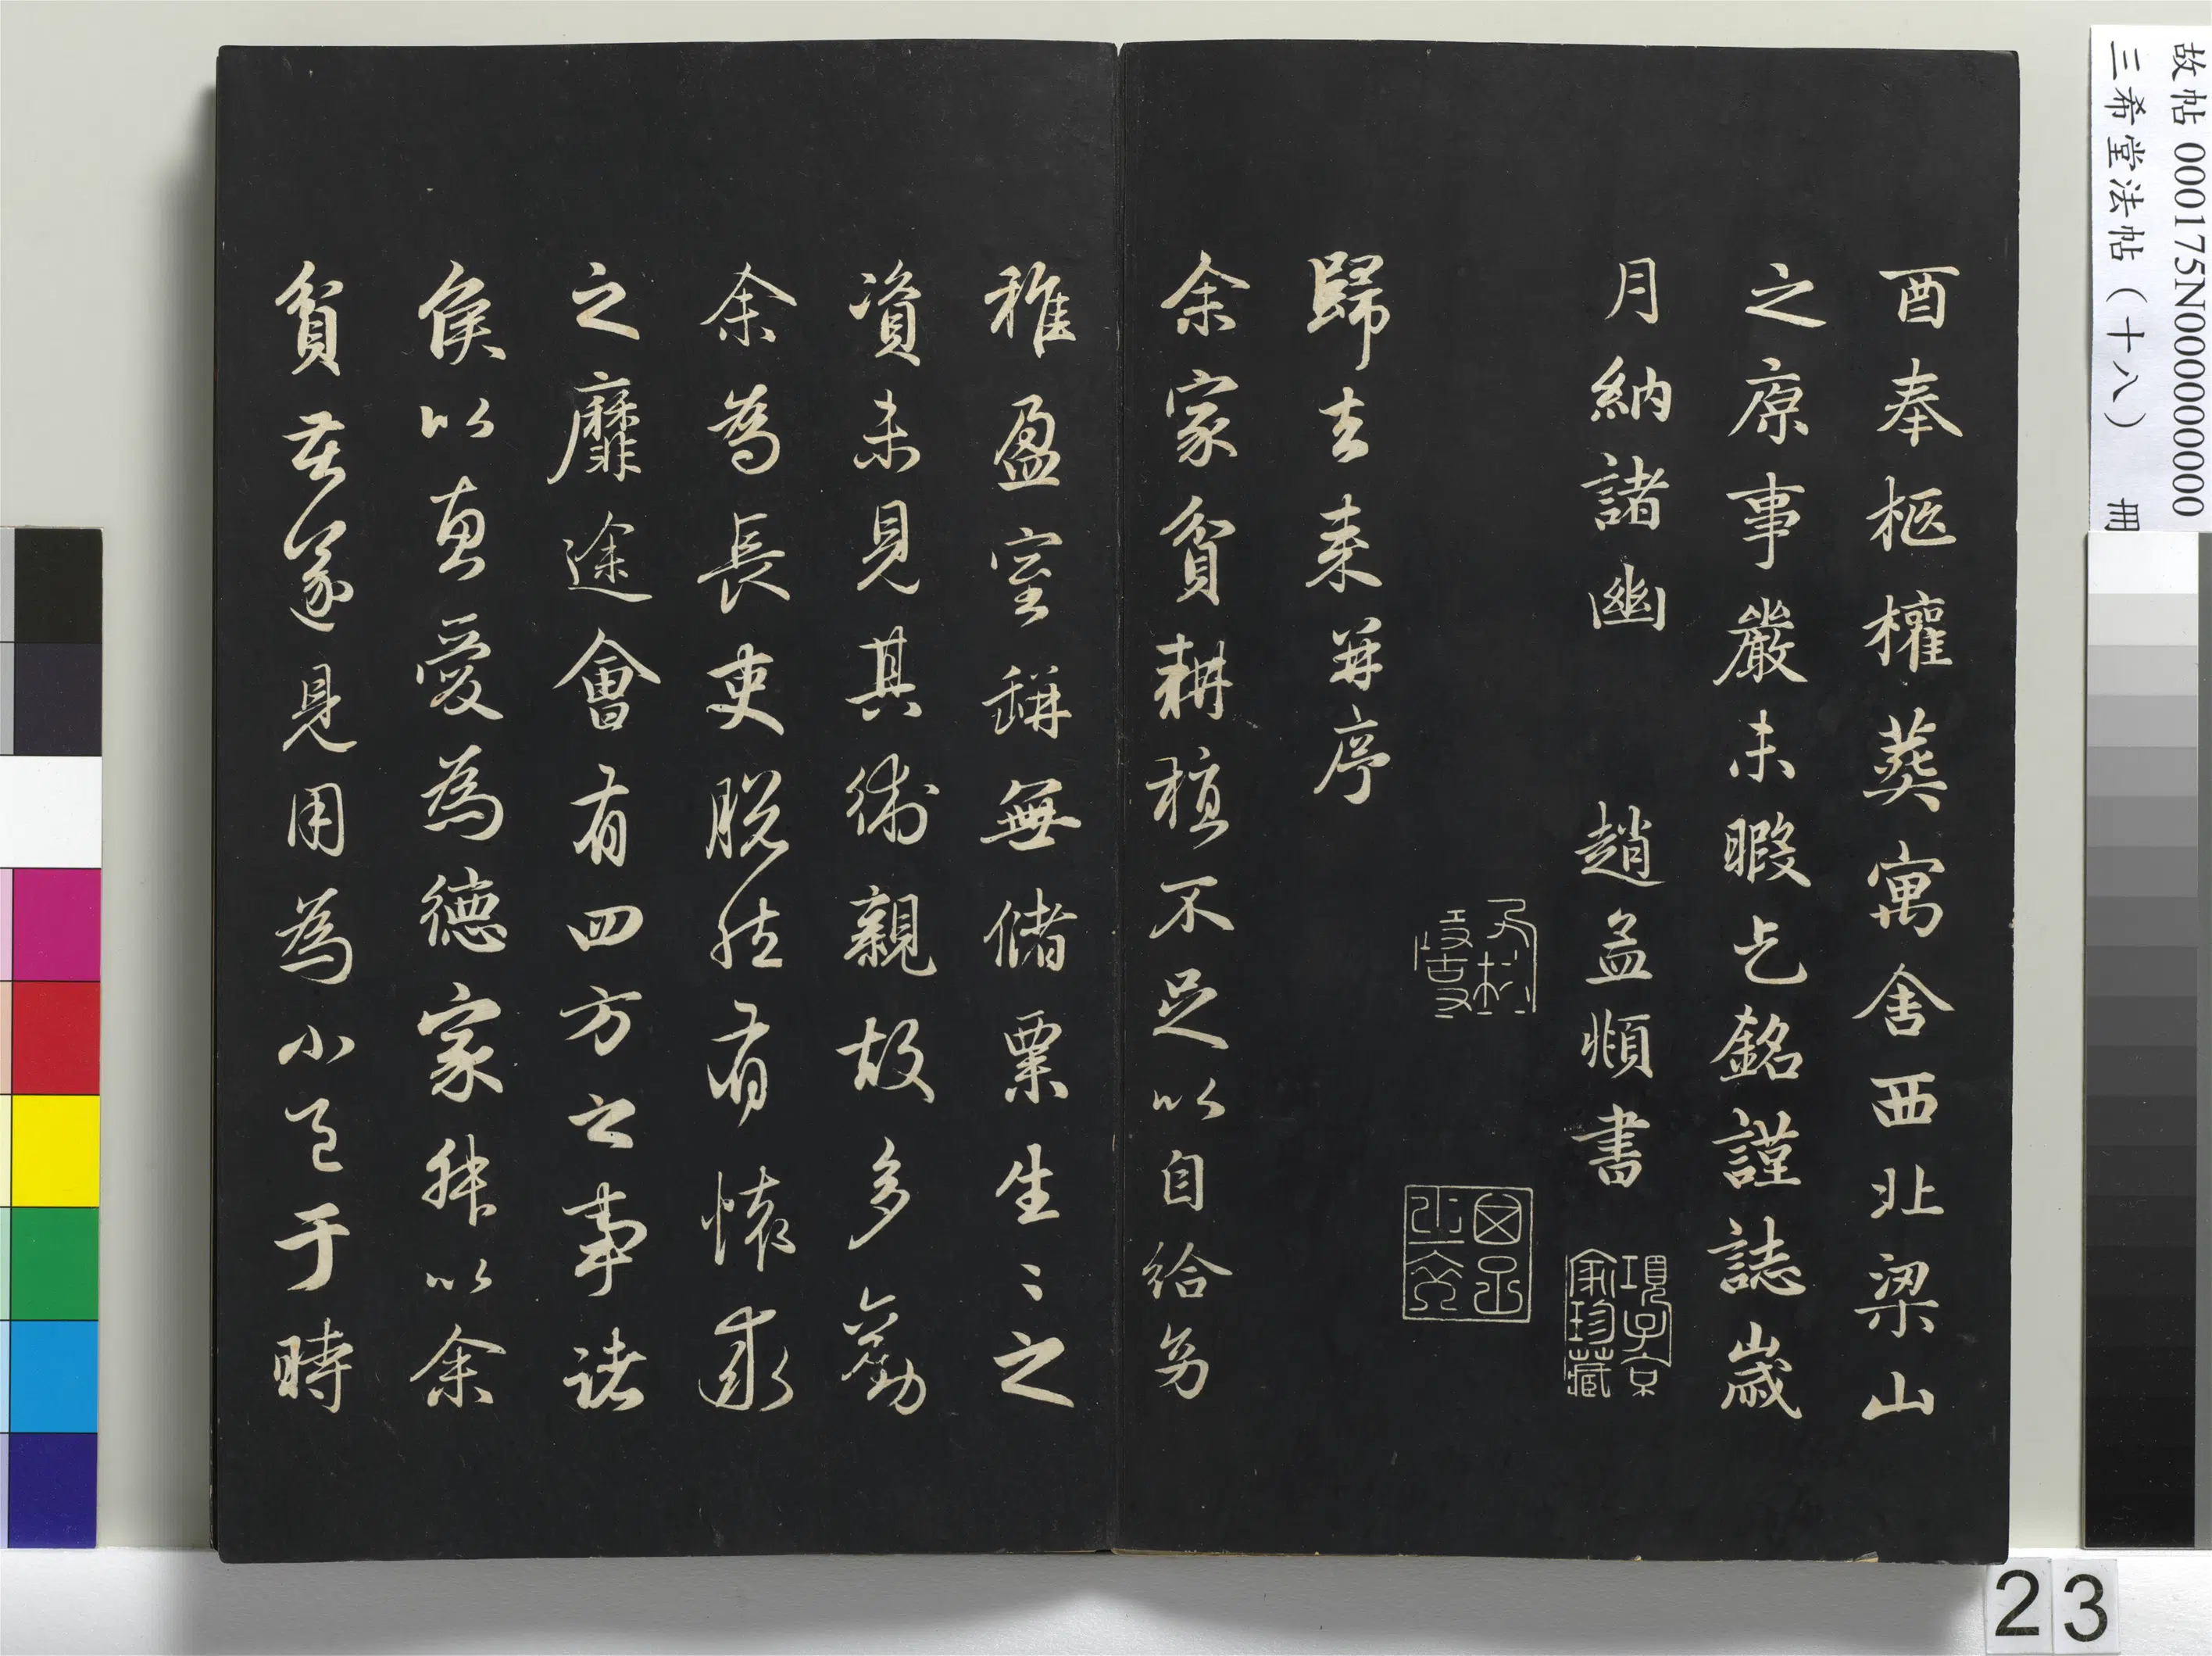 酉奉柩權葬寓舍西北梁山
之原事嚴未暇乞銘謹誌歲
月納諸幽　趙孟頫書
項子京家珍藏
歸去來并序
余家貧耕植不足以自給幼
稚盈室缾無儲粟生〻之
資未見其術親故多勸
余為長吏脫然有懷求
之靡途會有四方之事諸
侯以惠愛為德家叔以余
貧苦遂見用為小邑于時
故帖 000175N000000000
三希堂法帖（十八） 冊
23